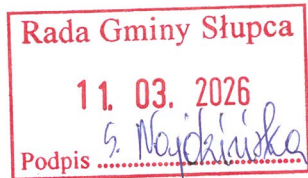 Rada Gminy Słupca
11. 03. 2026
Podpis S. Nojdzińska